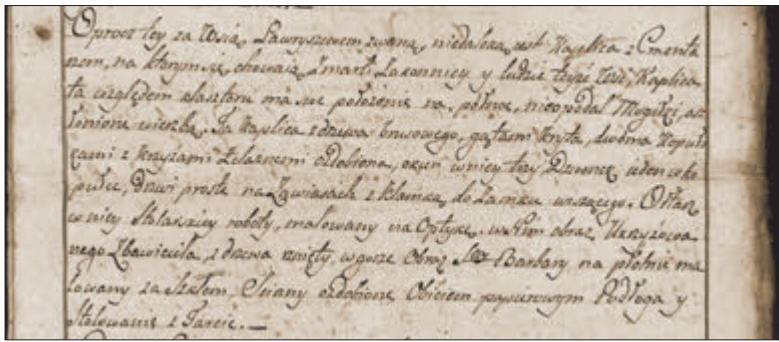 Oprocz tey za Wsią Ławryszewem zwaną, niedaleka iest Kaplica z Cmenta
rzem, na ktorym się chowaią Zmarli Zakonnicy y ludzie teyże Wsi, Kaplica
ta względem klasztoru ma swe położenie na połnoc, nieopodal Mogiłki
wierzbą. Ta Kaplica z drzewa brusowego, gątami kryta, dwoma Kopuł
kami z krzyżami żelaznemi ozdobiona, okien w niey trzy Dzwonek ieden w ko
pułce, drzwi proste na Zawiasach z klamką, do Zamku wiszącego. Ołtarz
w niey Stolarskiey roboty, malowany na Optykę. w Nim obraz Ukrzyżowa
nego Zbawiciela, z drzewa rznięty, w gorze Obraz Stey Barbary na płotnie ma
lowany za Szkłem. Sciany ozdobione Obiciem papierowym Podłoga y
Stalowanie z Tarcic. —